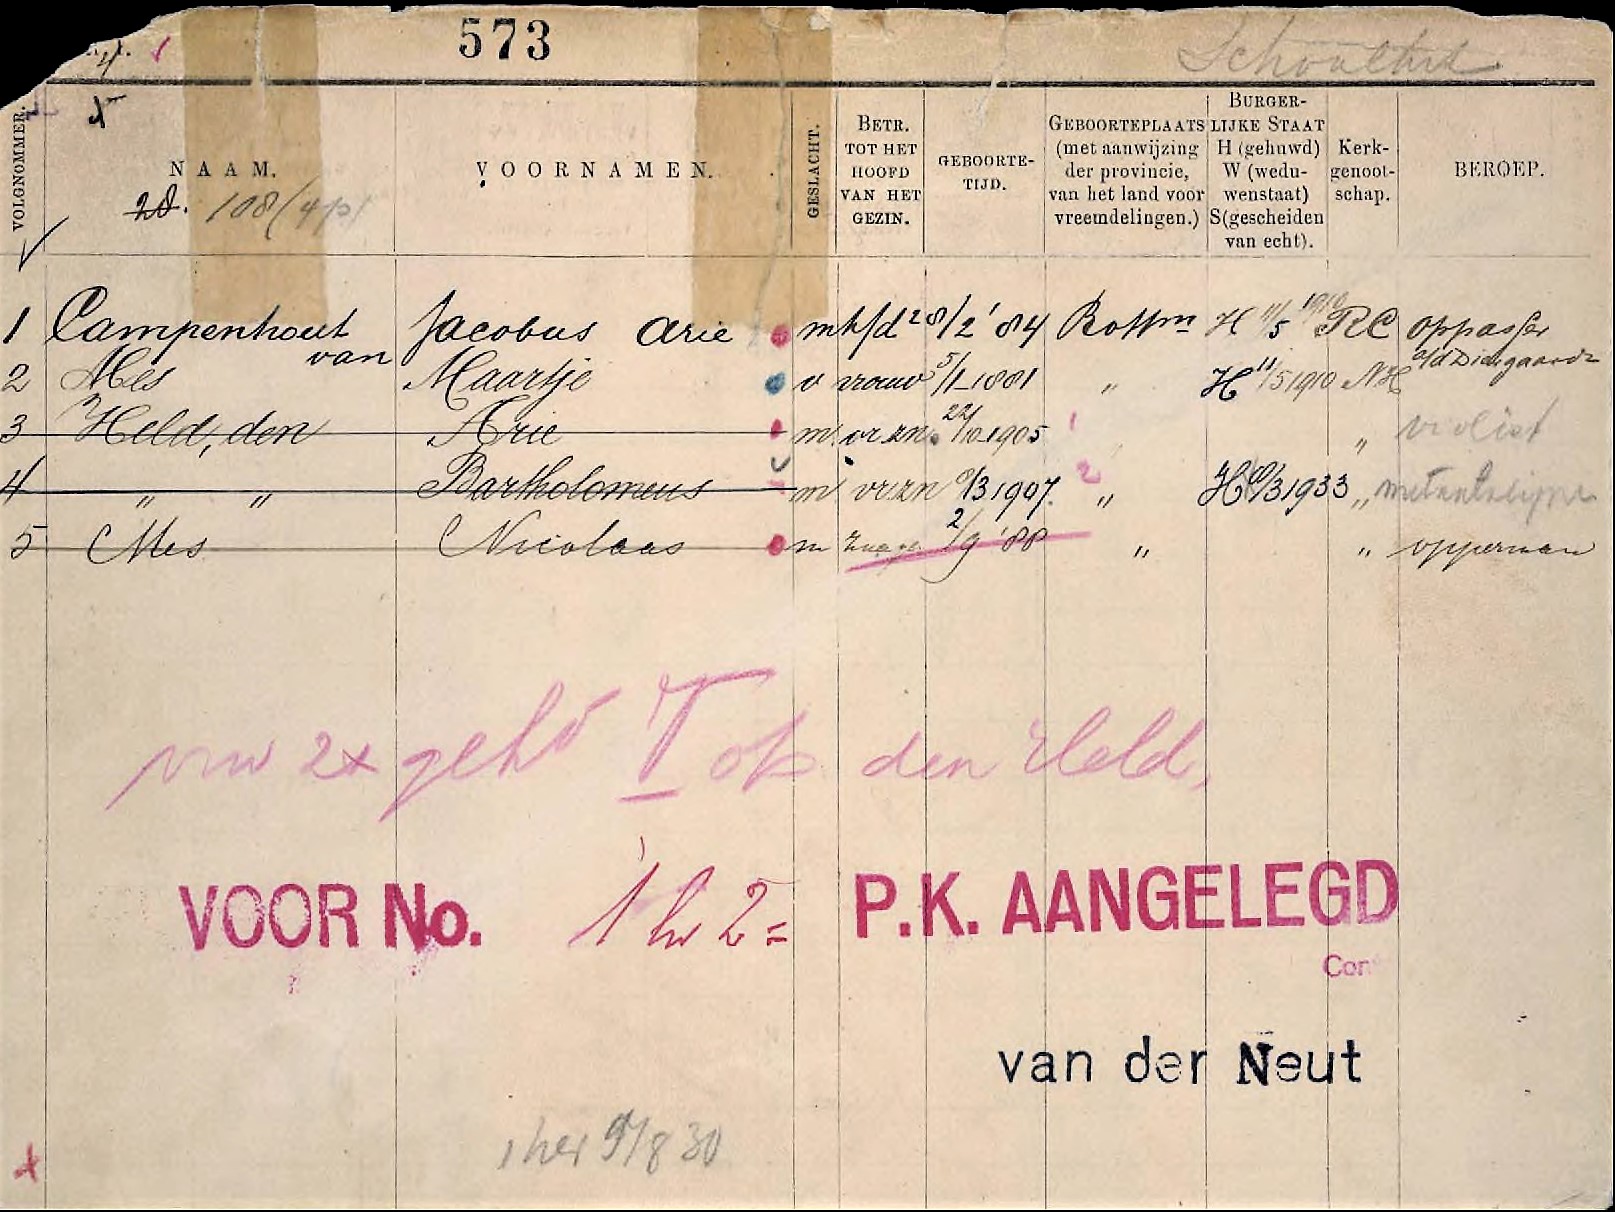 573
Schoulthit
VOLGNOMMER.
NAAM.
28. 108 (4p)
VOORNAMEN.
GESLACHT.
BETR. TOT HET HOOFD VAN HET GEZIN.
GEBOORTE-TIJD.
GEBOORTEPLAATS (met aanwijzing der provincie, van het land voor vreemdelingen.)
BURGER-LIJKE STAAT H (gehuwd) W (wedu-wenstaat) S (gescheiden van echt).
Kerk-genoot-schap.
BEROEP.
1 Campenhout van Jacobus Arie m hfd 28/2 '84 Rottm H 11/5 1910 RC oppasser a/d Diergaarde
2 Mes Maartje v vrouw 5/1-1881 " H 11/5 1910 NH
3 Held, den Arie m vr zn. 22/10 1905 1 " violist
4 " " Bartholomeus m vr zn /3 1907. 2 " H /3 1933 "
5 Mes Nicolaas m 2/9 '88 " " opperman
vrw 2x geh I ob den Held,
VOOR No. 1 en 2 = P.K. AANGELEGD
Con
van der Neut
1 her 9/8 30